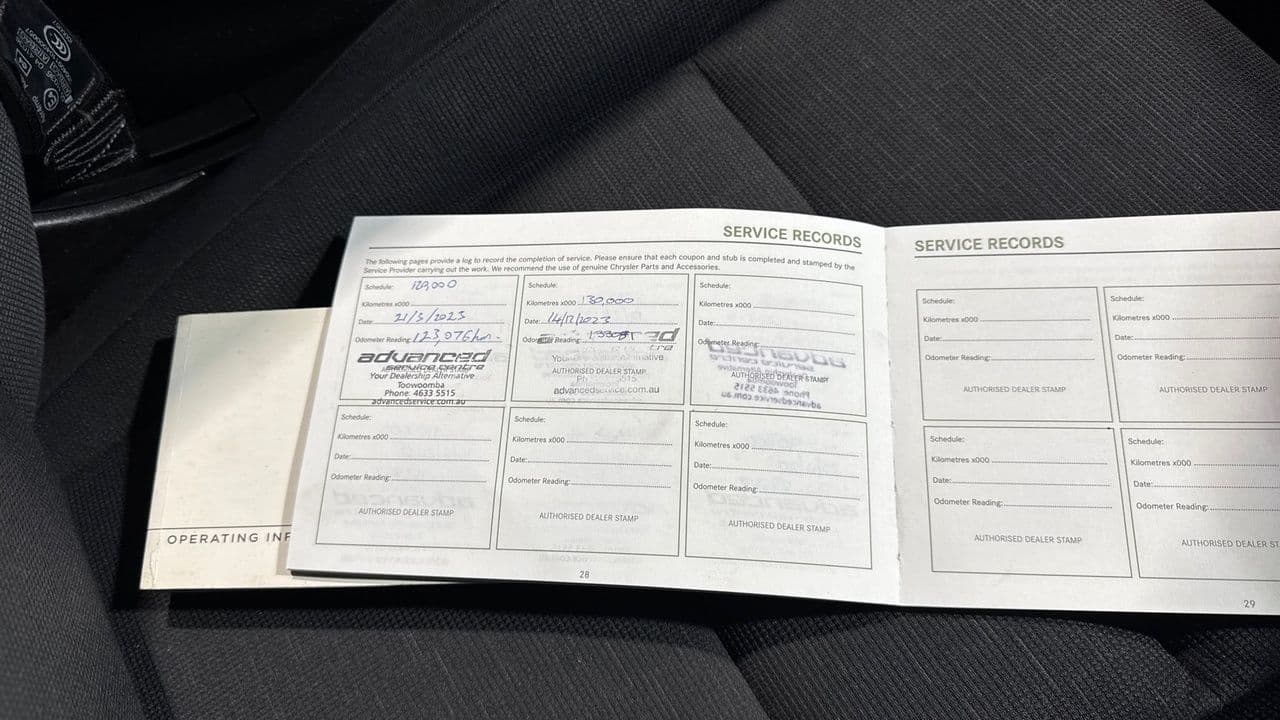 SERVICE RECORDS
The following pages provide a log to record the completion of service. Please ensure that each coupon and stub is completed and stamped by the
Service Provider carrying out the work. We recommend the use of genuine Chrysler Parts and Accessories.
Schedule: 120,000
Kilometres x000
Date: 21/3/2023
Odometer Reading: 123076km
advanced
service centre
Your Dealership Alternative
Toowoomba
Phone: 4633 5515
advancedservice.com.au
Schedule:
Kilometres x000 130,000
Date:
Odometer Reading:
AUTHORISED DEALER STAMP
advancedservice.com.au
Schedule:
Kilometres x000
Date:
Odometer Reading:
AUTHORISED DEALER STAMP
Schedule:
Kilometres x000
Date:
Odometer Reading:
AUTHORISED DEALER STAMP
Schedule:
Kilometres x000
Date:
Odometer Reading:
AUTHORISED DEALER STAMP
Schedule:
Kilometres x000
Date:
Odometer Reading:
AUTHORISED DEALER STAMP
28
SERVICE RECORDS
Schedule:
Kilometres x000
Date:
Odometer Reading:
AUTHORISED DEALER STAMP
Schedule:
Kilometres x000
Date:
Odometer Reading:
AUTHORISED DEALER STAMP
Schedule:
Kilometres x000
Date:
Odometer Reading:
AUTHORISED DEALER STAMP
Schedule:
Kilometres x000
Date:
Odometer Reading:
AUTHORISED DEALER ST
29
OPERATING INF